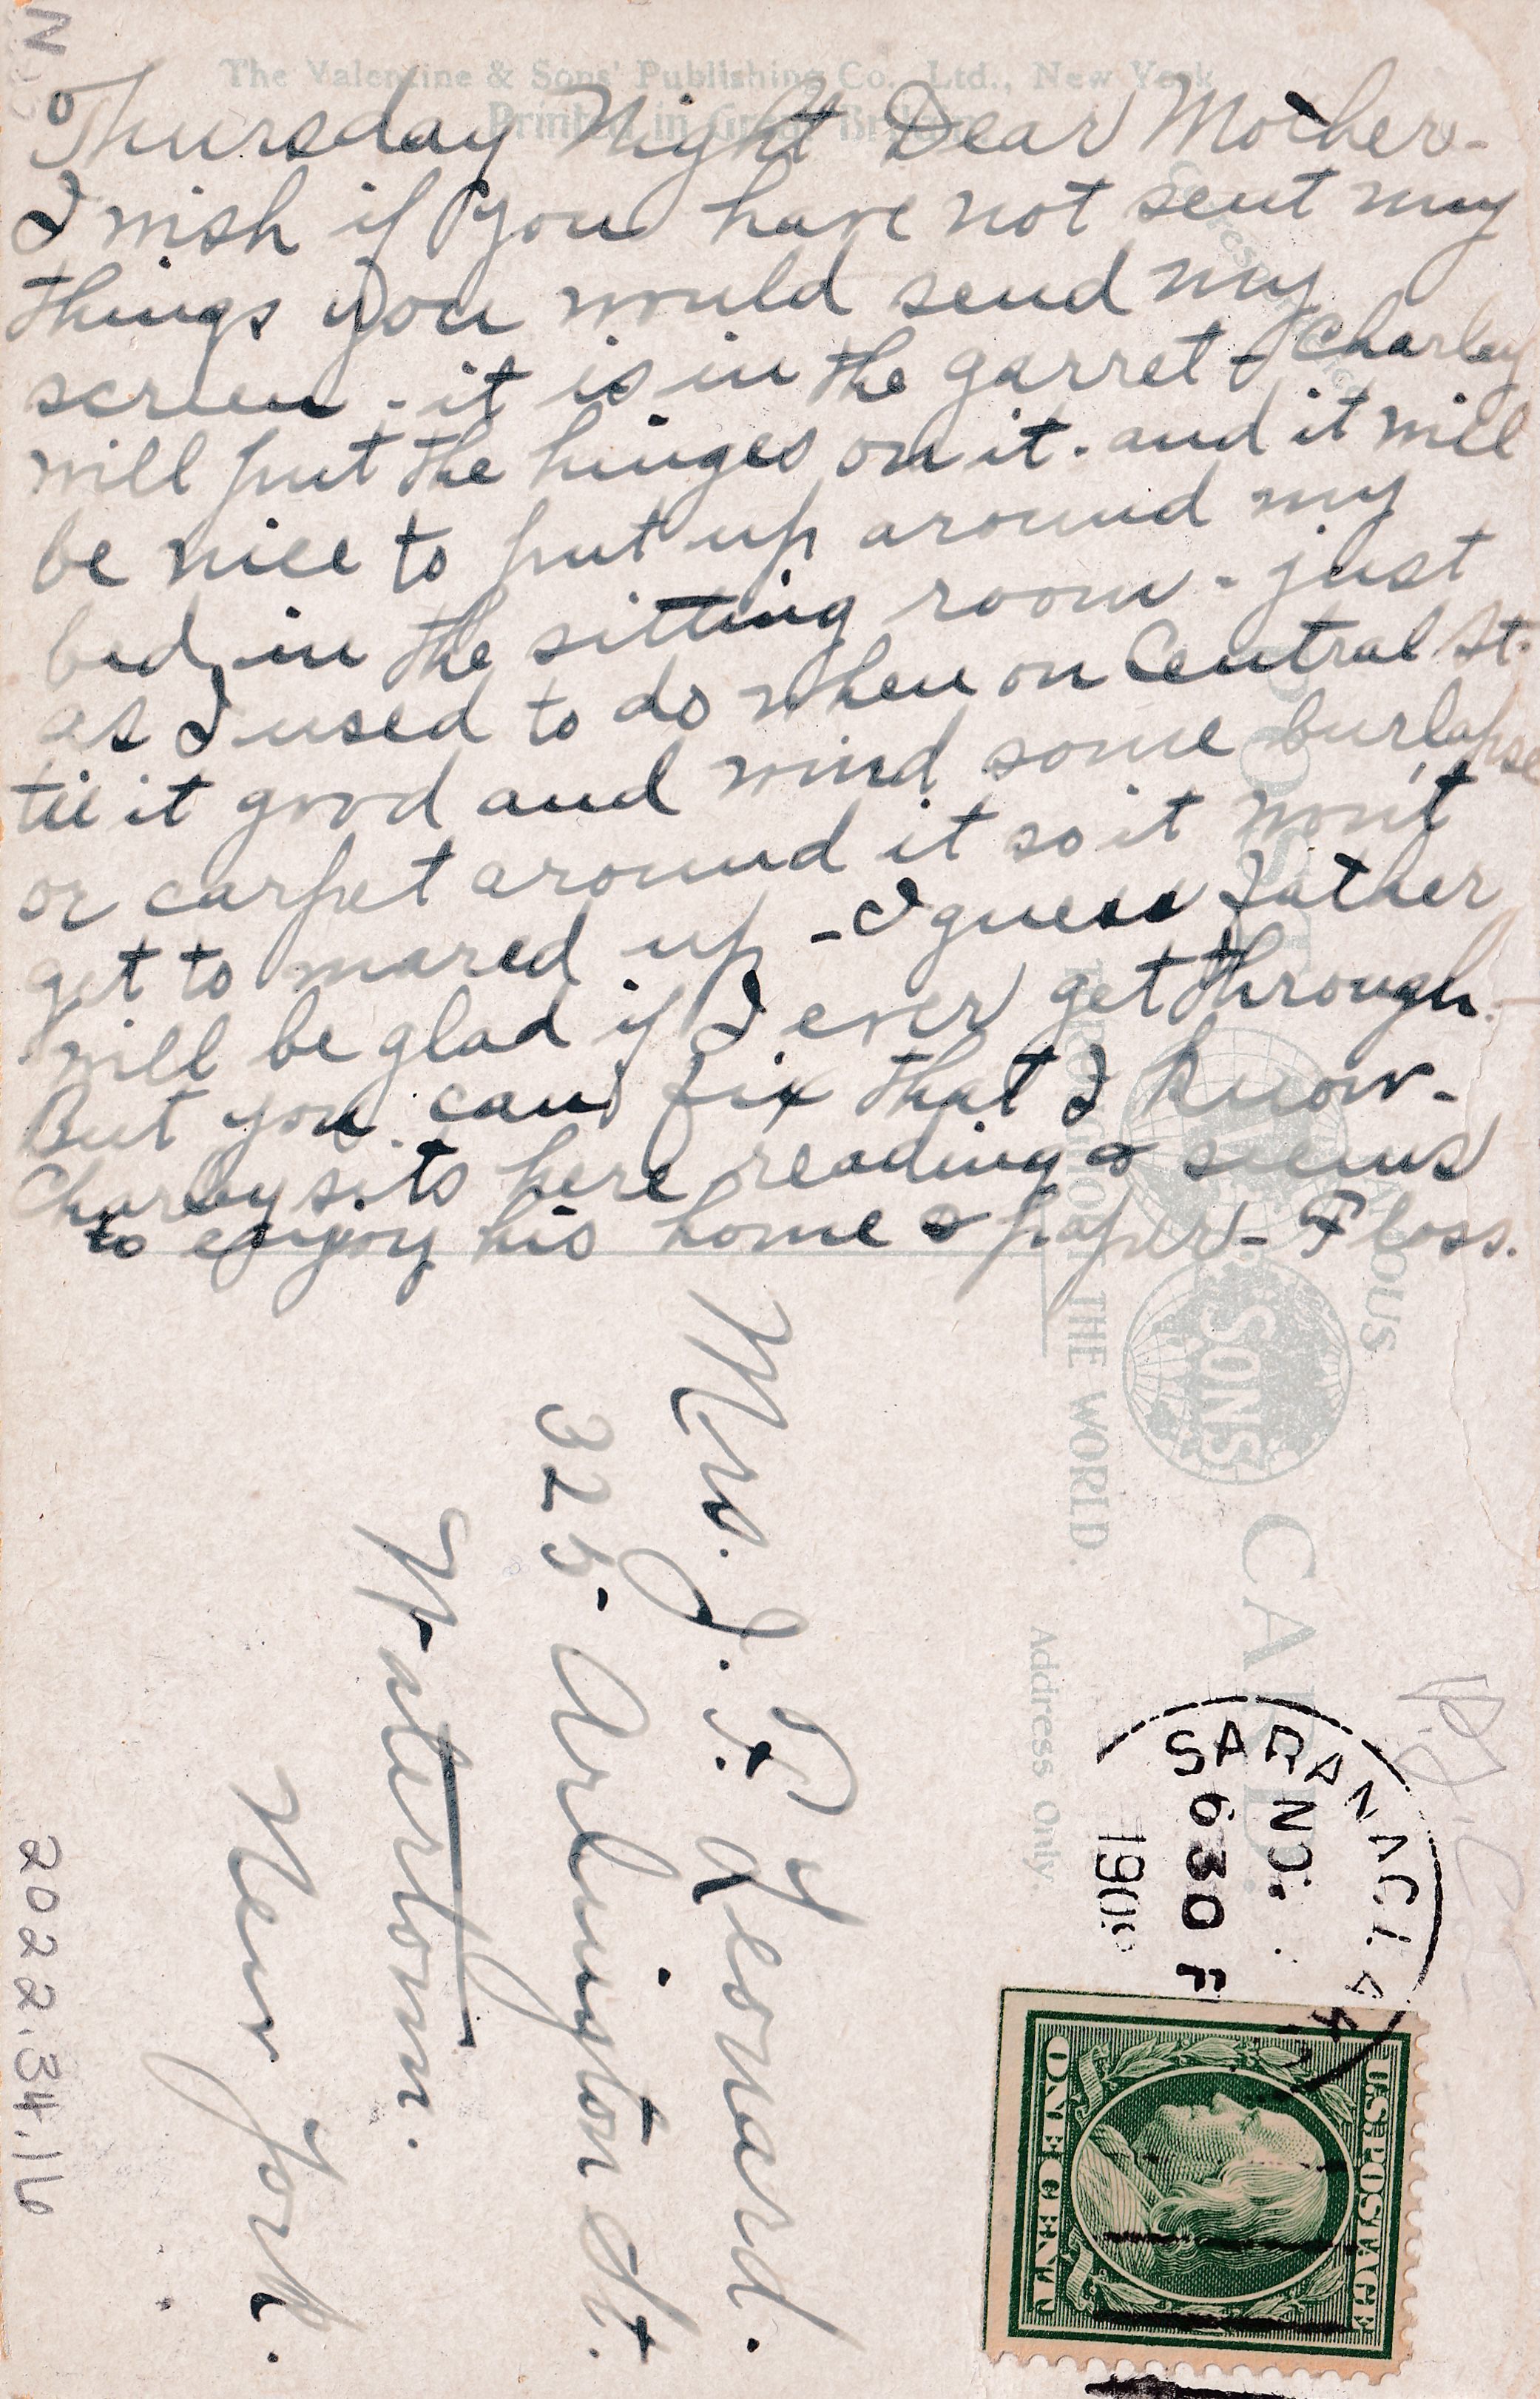 The Valentine & Sons' Publishing Co., Ltd., New York
Printed in Great Britain
Thursday Night Dear Mother -
I wish if you have not sent my
things you would send my
screen - it is in the garret - Charley
will put the hinges on it. and it will
be nice to put up around my
bed in the sitting room - just
as I used to do when on Central St.
tie it good and wind some burlapse
or carpet around it so it won't
get to mared up - I guess Father
will be glad if I ever get through.
But you can fix that I know -
Charley sits here reading & seems
to enjoy his home & paper - Floss.
Mrs. J. F. Leonard.
325 - Arlington St.
Watertown.
New York.
THE WORLD.
SONS
CARD
Address Only
SARANAC LA
6 30 P
190
U.S. POSTAGE
ONE CENT
2022.34.16